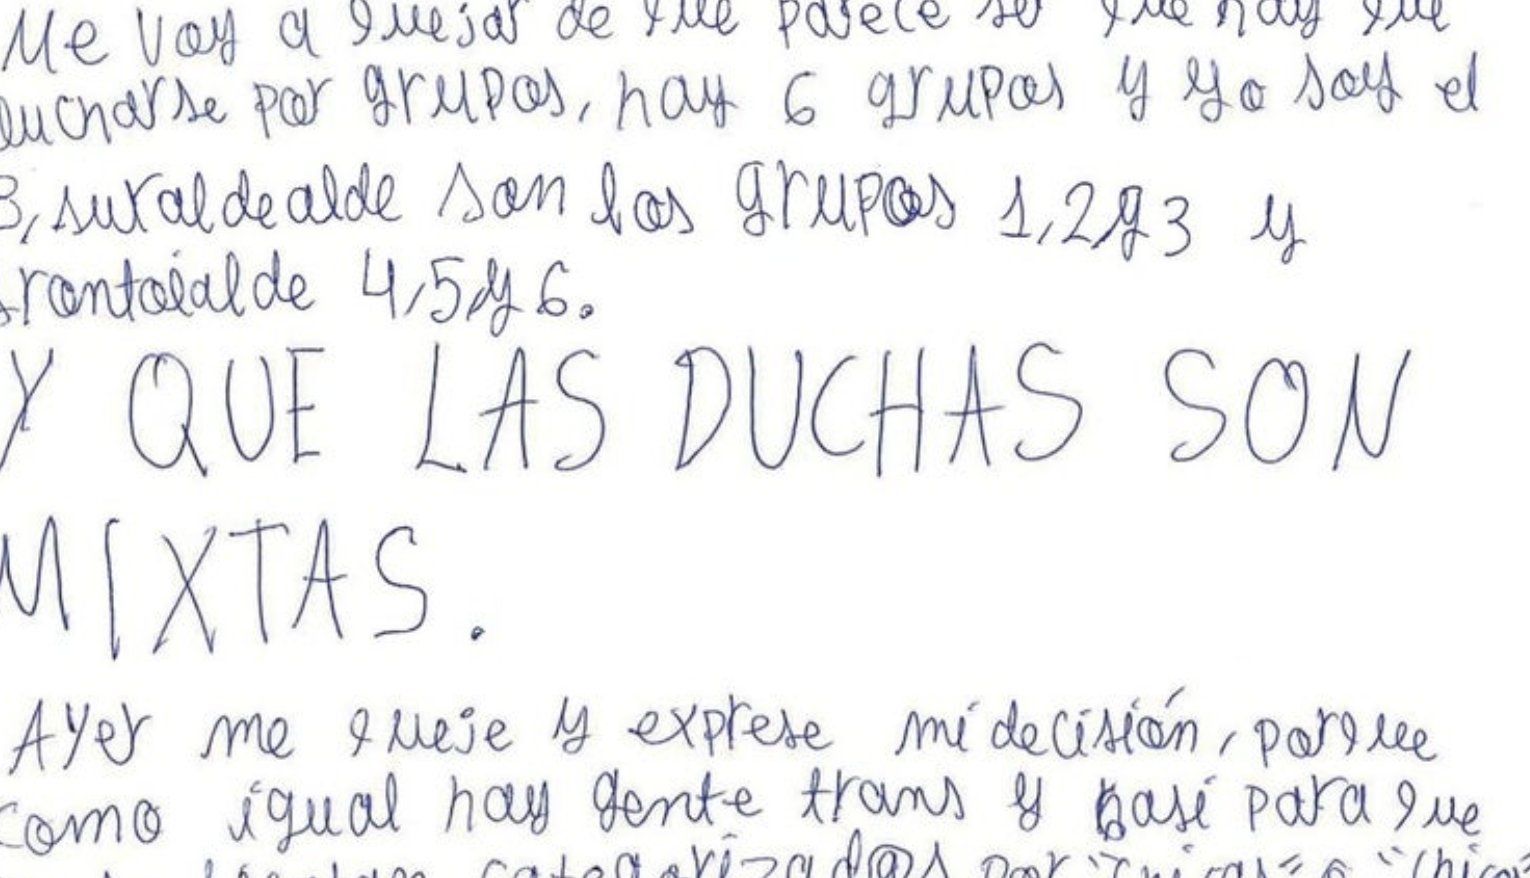 Me voy a quejar de que parece ser que hay que
ducharse por grupos, hay 6 grupos y yo soy el
3, suraldealde son los grupos 1,2y3 y
frontoialde 4,5y6.
Y QUE LAS DUCHAS SON
MIXTAS.
Ayer me queje y exprese mi decisión, porque
como igual hay gente trans y basi para que
categorizad@s por "chicas" o "chicos